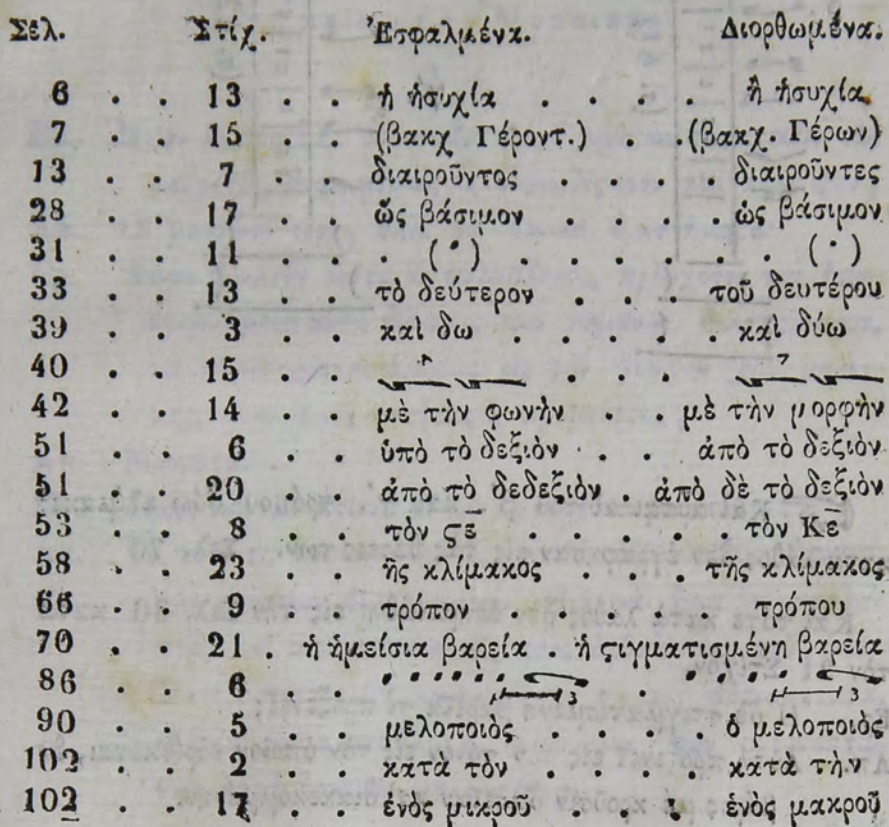 Σελ. Στίχ. Ἐσφαλμένα. Διορθωμένα.
6 . . 13 . . ἡ ἡσυχία . . . . ἢ ἡσυχία
7 . . 15 . . (βακχ Γέροντ.) . . (βακχ. Γέρων)
13 . . 7 . . διαιροῦντος . . . . διαιροῦντες
28 . . 17 . . ὥς βάσιμον . . . . ὡς βάσιμον
31 . . 11 . . . ( ) . . . . . . . ( )
33 . . 13 . . τὸ δεύτερον . . . τοῦ δευτέρου
39 . . 3 . . καὶ δω . . . . . καὶ δύω
40 . . 15 . . . . .
42 . . 14 . . μὲ τὴν φωνὴν . . μὲ τὴν μορφὴν
51 . . 6 . . ὑπὸ τὸ δεξιὸν . . ἀπὸ τὸ δεξιὸν
51 . . 20 . . ἀπὸ τὸ δεδεξιὸν . ἀπὸ δὲ τὸ δεξιὸν
53 . . 8 . . τὸν ςε . . . . . τὸν Κε
58 . . 23 . . ῆς κλίμακος . . . τῆς κλίμακος
66 . . 9 . . τρόπον . . . . τρόπου
70 . . 21 . ἡ ἡμείσια βαρεία . ἡ ςιγματισμένη βαρεία
86 . . 6 . . 3 . 3
90 . . 5 . . μελοποιὸς . . . . ὁ μελοποιὸς
102 . . 2 . . κατὰ τὸν . . . . κατὰ τὴν
102 . . 17 . . ἑνὸς μικροῦ . . . ἑνὸς μακροῦ